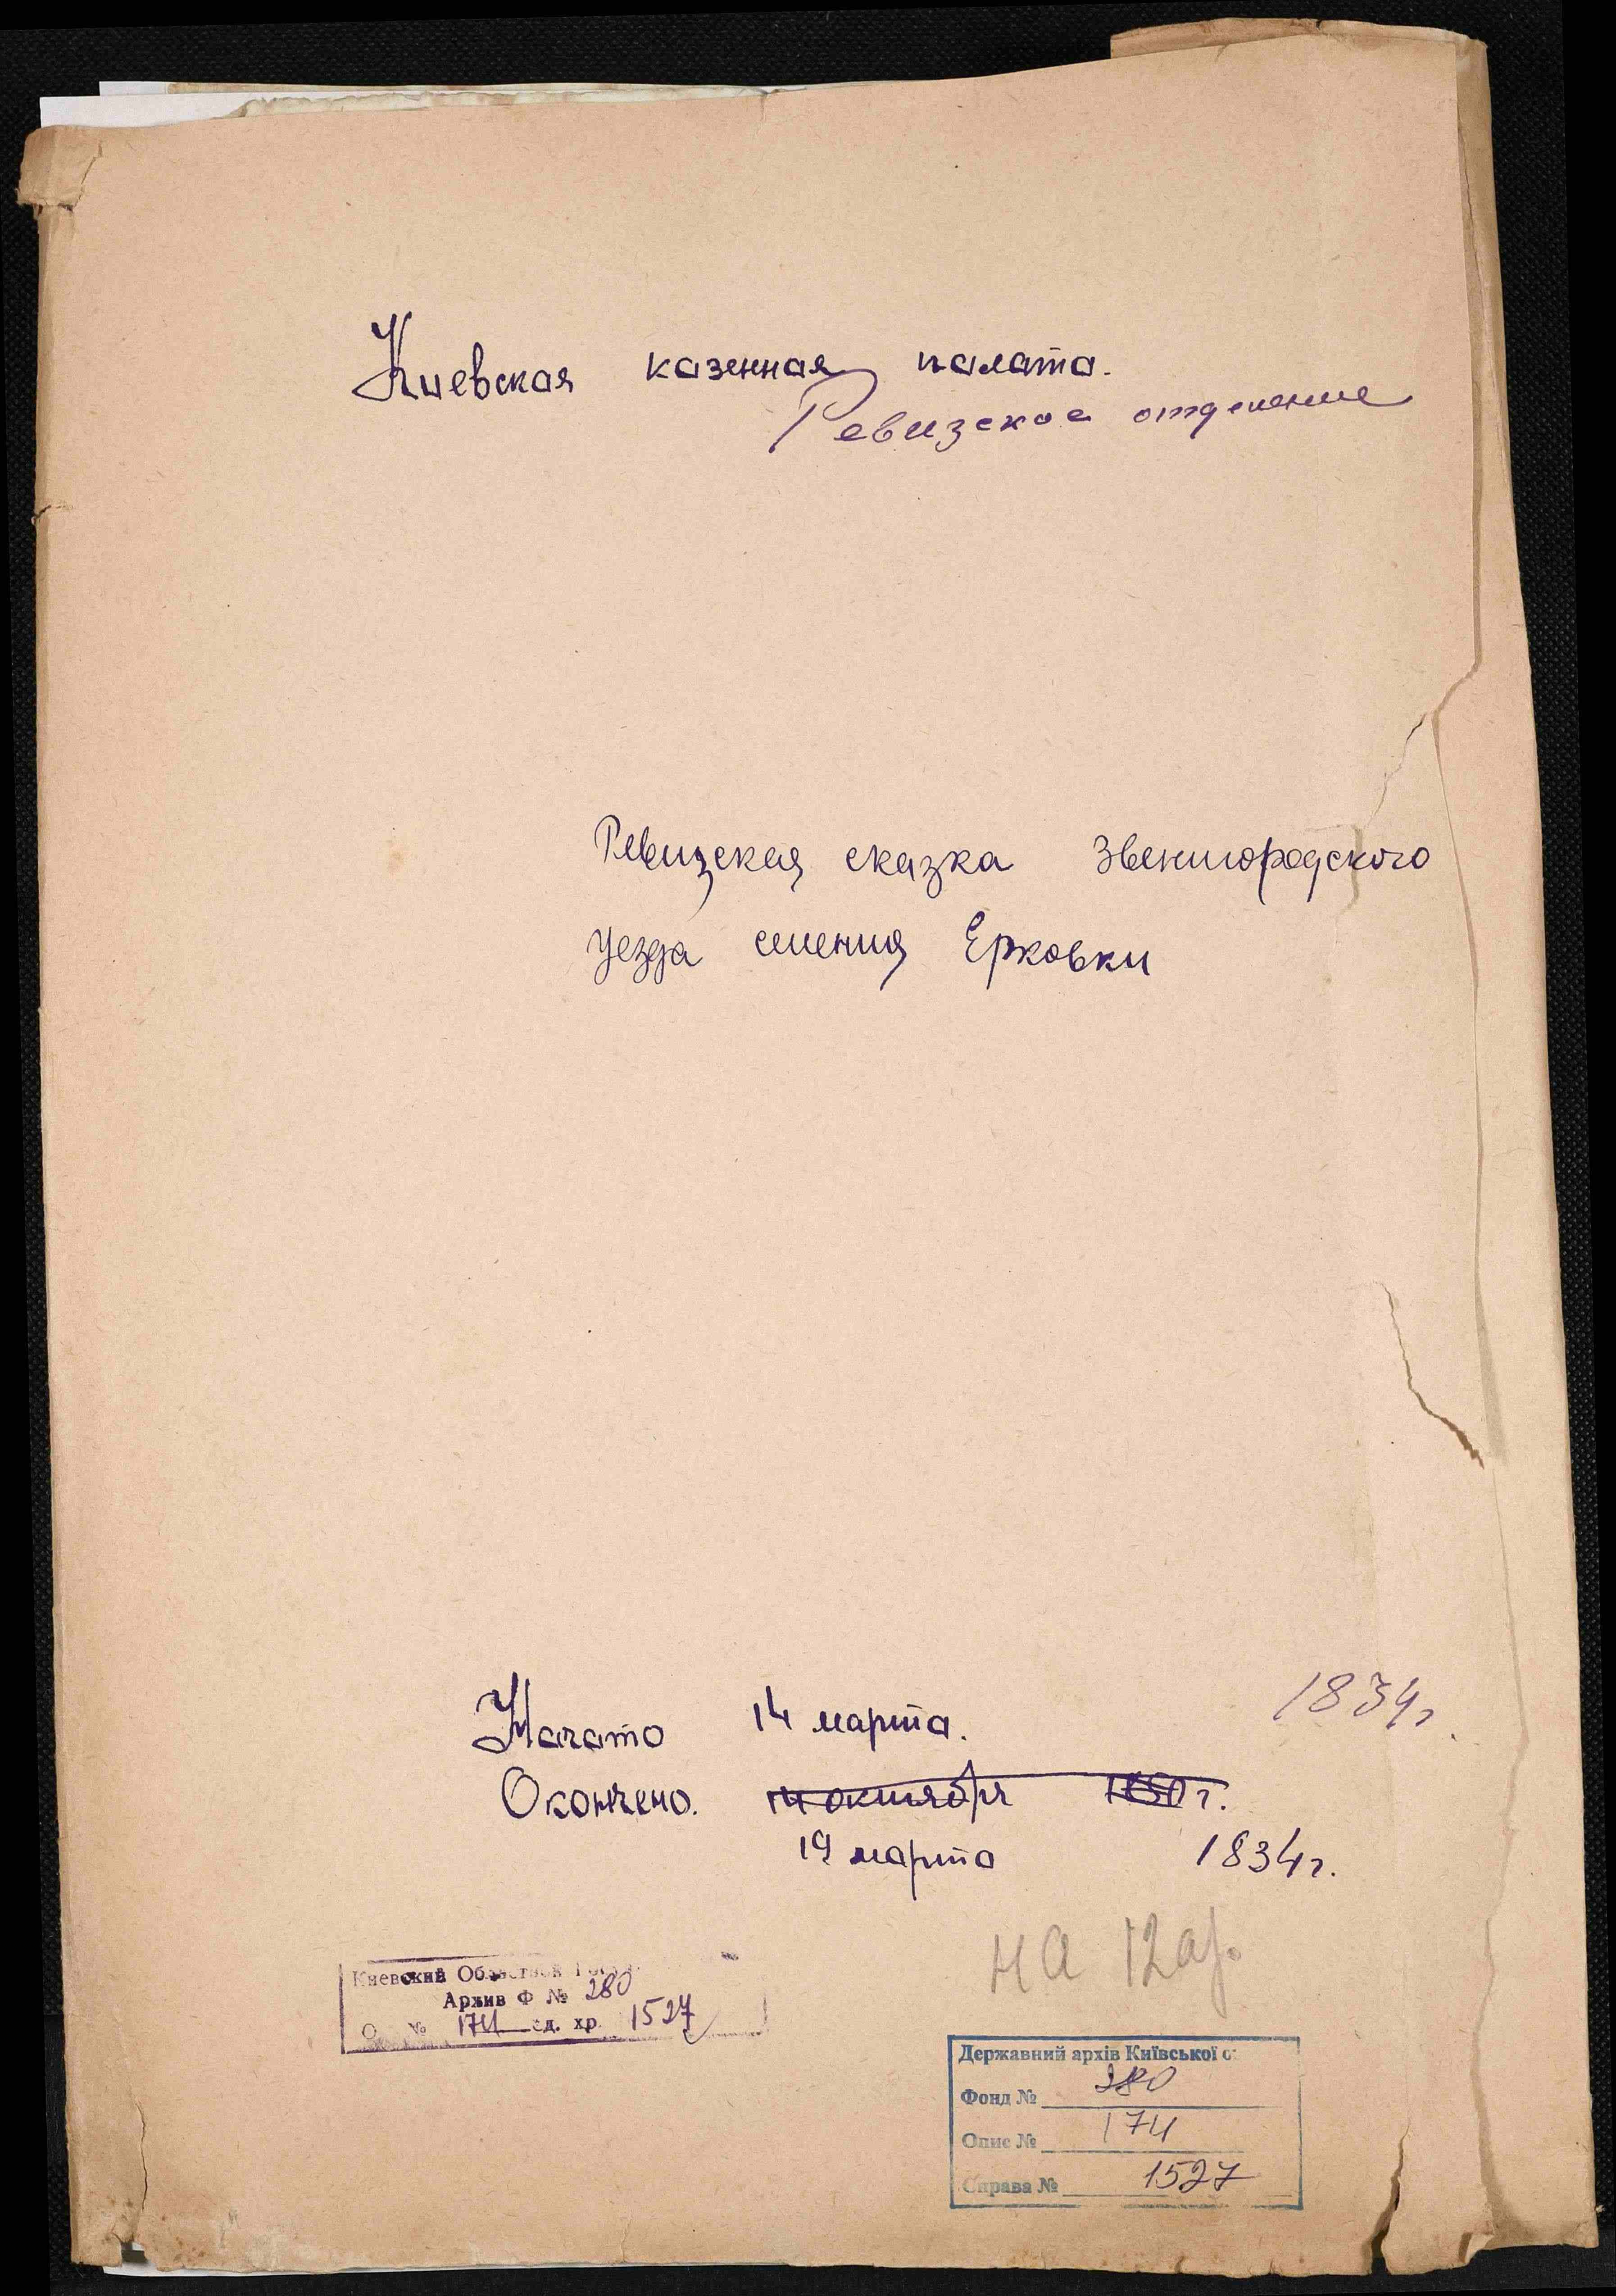 Киевская казенная палата.
Ревизское отделение
Ревизская сказка Звенигородского
уезда имения Ерковки
Начато 14 марта. 1834г.
Окончено. 14 октября 1850г.
19 марта 1834г.
на 12 ар.
Киевский Областной
Архив Ф № 280
О № 174 ед. хр. 1527
Державний архів Київської о
Фонд № 280
Опис № 174
Справа № 1527